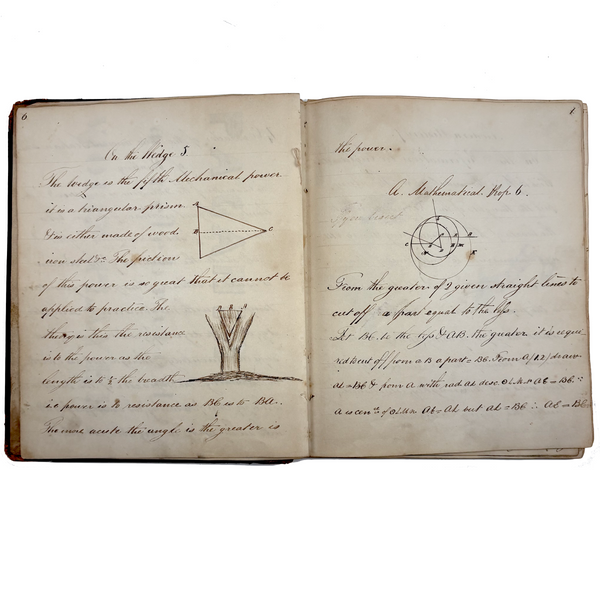 6
On the Wedge 8
The wedge is the fifth Mechanical power
it is a triangular prism
& is either made of wood
iron steel &c. The friction
of this power is so great that it cannot be
applied to practice. The
theory is this the resistance
is to the power as the
length is to ½ the breadth
i.e. power is to resistance as BC is to BA.
The more acute the angle is the greater is
the power.
A. Mathematical Prop. 6.
From the greater of 2 given straight lines to
cut off a part equal to the less.
Let BC be the less & AB the greater it is requi
red to cut off from AB a part = BC. From A draw
AL = BC & from A with rad AL desc.
A is cen. of AE = AL but AL = BC ∴ AE = BC